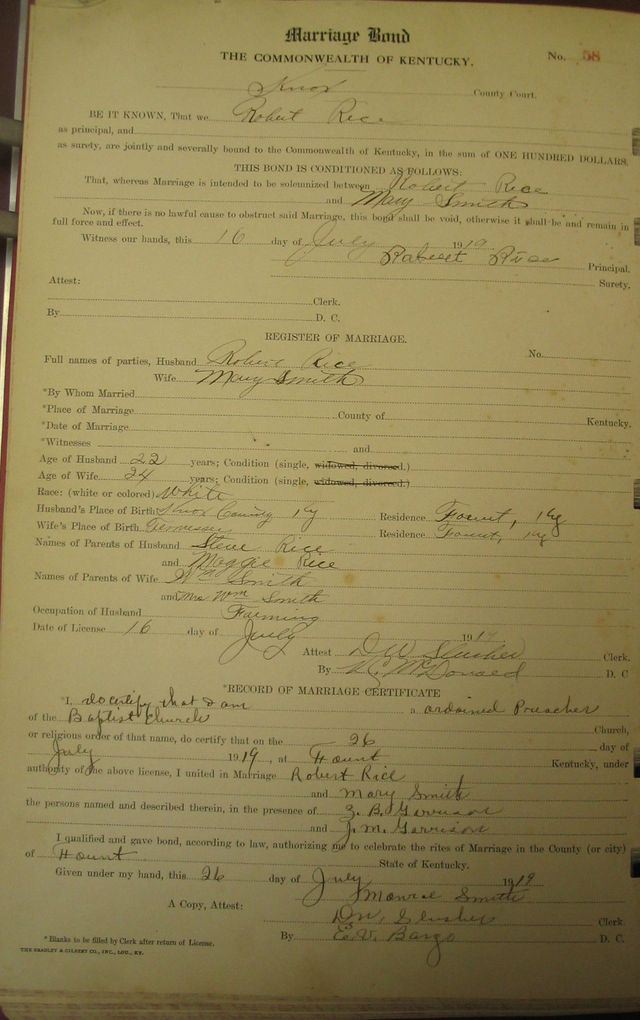 Marriage Bond
THE COMMONWEALTH OF KENTUCKY. No. 58
Knox County Court.
BE IT KNOWN, That we Robert Rice
as principal, and
as surety, are jointly and severally bound to the Commonwealth of Kentucky, in the sum of ONE HUNDRED DOLLARS.
THIS BOND IS CONDITIONED AS FOLLOWS:
That, whereas Marriage is intended to be solemnized between Robert Rice
and Mary Smith
Now, if there is no lawful cause to obstruct said Marriage, this bond shall be void, otherwise it shall be and remain in
full force and effect.
Witness our hands, this 16 day of July 1919
Robert Rice Principal.
Surety.
Attest:
Clerk.
By D. C.
REGISTER OF MARRIAGE.
Full names of parties, Husband Robert Rice No.
Wife Mary Smith
*By Whom Married
*Place of Marriage County of Kentucky.
*Date of Marriage
*Witnesses and
Age of Husband 22 years; Condition (single, widowed, divorced.)
Age of Wife 24 years; Condition (single, widowed, divorced.)
Race: (white or colored) White
Husband's Place of Birth Knox County Ky Residence Fount, Ky
Wife's Place of Birth Tennessee Residence Fount, Ky
Names of Parents of Husband Steve Rice
and Maggie Rice
Names of Parents of Wife Wm Smith
and Mrs Wm Smith
Occupation of Husband Farming
Date of License 16 day of July 1919
Attest DW Slusher Clerk.
By McDonald D. C
*RECORD OF MARRIAGE CERTIFICATE
*I, do certify that I am a ordained Preacher
of the Baptist Church Church,
or religious order of that name, do certify that on the 26 day of
July 1919, at Hount Kentucky, under
authority of the above license, I united in Marriage Robert Rice
and Mary Smith
the persons named and described therein, in the presence of Z. B. Garrison
and J. M. Garrison
I qualified and gave bond, according to law, authorizing me to celebrate the rites of Marriage in the County (or city)
of Hount State of Kentucky.
Given under my hand, this 26 day of July 1919
Monroe Smith
A Copy, Attest: DW. Slusher Clerk.
By E. V. Bargo D. C.
* Blanks to be filled by Clerk after return of License.
THE BRADLEY & GILBERT CO., INC., LOU., KY.